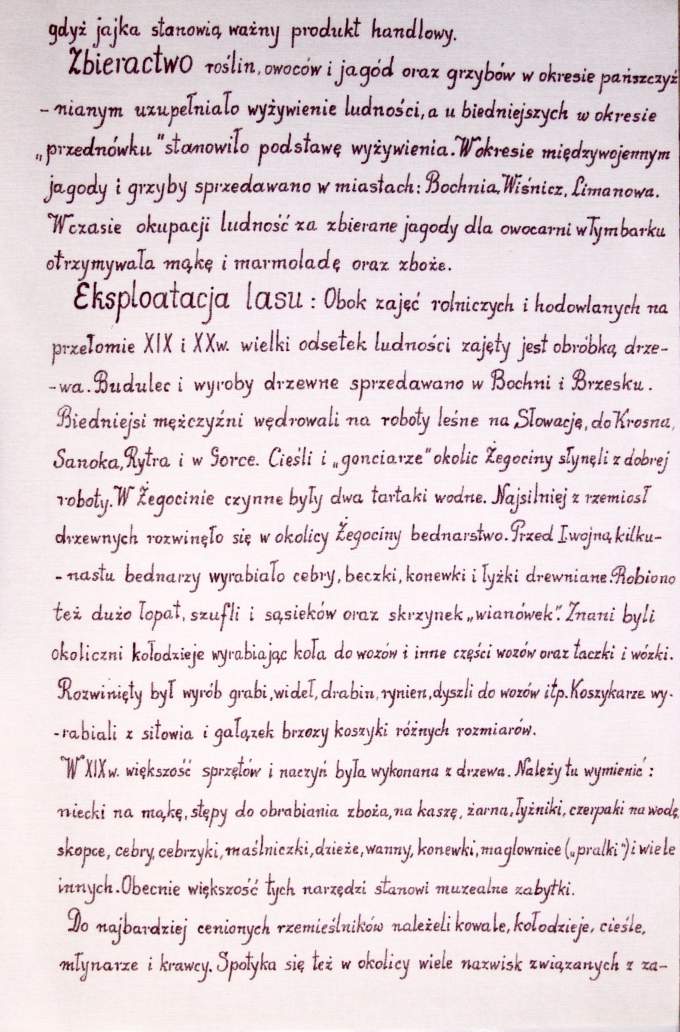 gdyż jajka stanowią ważny produkt handlowy.
Zbieractwo roślin, owoców i jagód oraz grzybów w okresie pańszczyź
-nianym uzupełniało wyżywienie ludności, a u biedniejszych w okresie
„przednówku" stanowiło podstawę wyżywienia. W okresie międzywojennym
jagody i grzyby sprzedawano w miastach: Bochnia, Wiśnicz, Limanowa.
W czasie okupacji ludność za zbierane jagody dla owocarni w Tymbarku
otrzymywała mąkę i marmoladę oraz zboże.
Eksploatacja lasu: Obok zajęć rolniczych i hodowlanych na
przełomie XIX i XX w. wielki odsetek ludności zajęty jest obróbką drze-
-wa. Budulec i wyroby drzewne sprzedawano w Bochni i Brzesku.
Biedniejsi mężczyźni wędrowali na roboty leśne na Słowację, do Krosna,
Sanoka, Rytra i w Gorce. Cieśli i „gonciarze" okolic Żegociny słynęli z dobrej
roboty. W Żegocinie czynne były dwa tartaki wodne. Najsilniej z rzemiosł
drzewnych rozwinęło się w okolicy Żegociny bednarstwo. Przed I wojną kilku-
-nastu bednarzy wyrabiało cebry, beczki, konewki i łyżki drewniane. Robiono
też dużo łopat, szufli i sąsieków oraz skrzynek „wianówek". Znani byli
okoliczni kołodzieje wyrabiając koła do wozów i inne części wozów oraz taczki i wózki.
Rozwinięty był wyrób grabi, wideł, drabin, rynien, dyszli do wozów itp. Koszykarze wy-
-rabiali z sitowia i gałązek brzozy koszyki różnych rozmiarów.
W XIX w. większość sprzętów i naczyń była wykonana z drzewa. Należy tu wymienić:
niecki na mąkę, stępy do obrabiania zboża, na kaszę, żarna, łyżniki, czerpaki na wodę,
skopce, cebry, cebrzyki, maślniczki, dzieże, wanny, konewki, maglownice („pralki") i wiele
innych. Obecnie większość tych narzędzi stanowi muzealne zabytki.
Do najbardziej cenionych rzemieślników należeli kowale, kołodzieje, cieśle,
młynarze i krawcy. Spotyka się też w okolicy wiele nazwisk związanych z za-